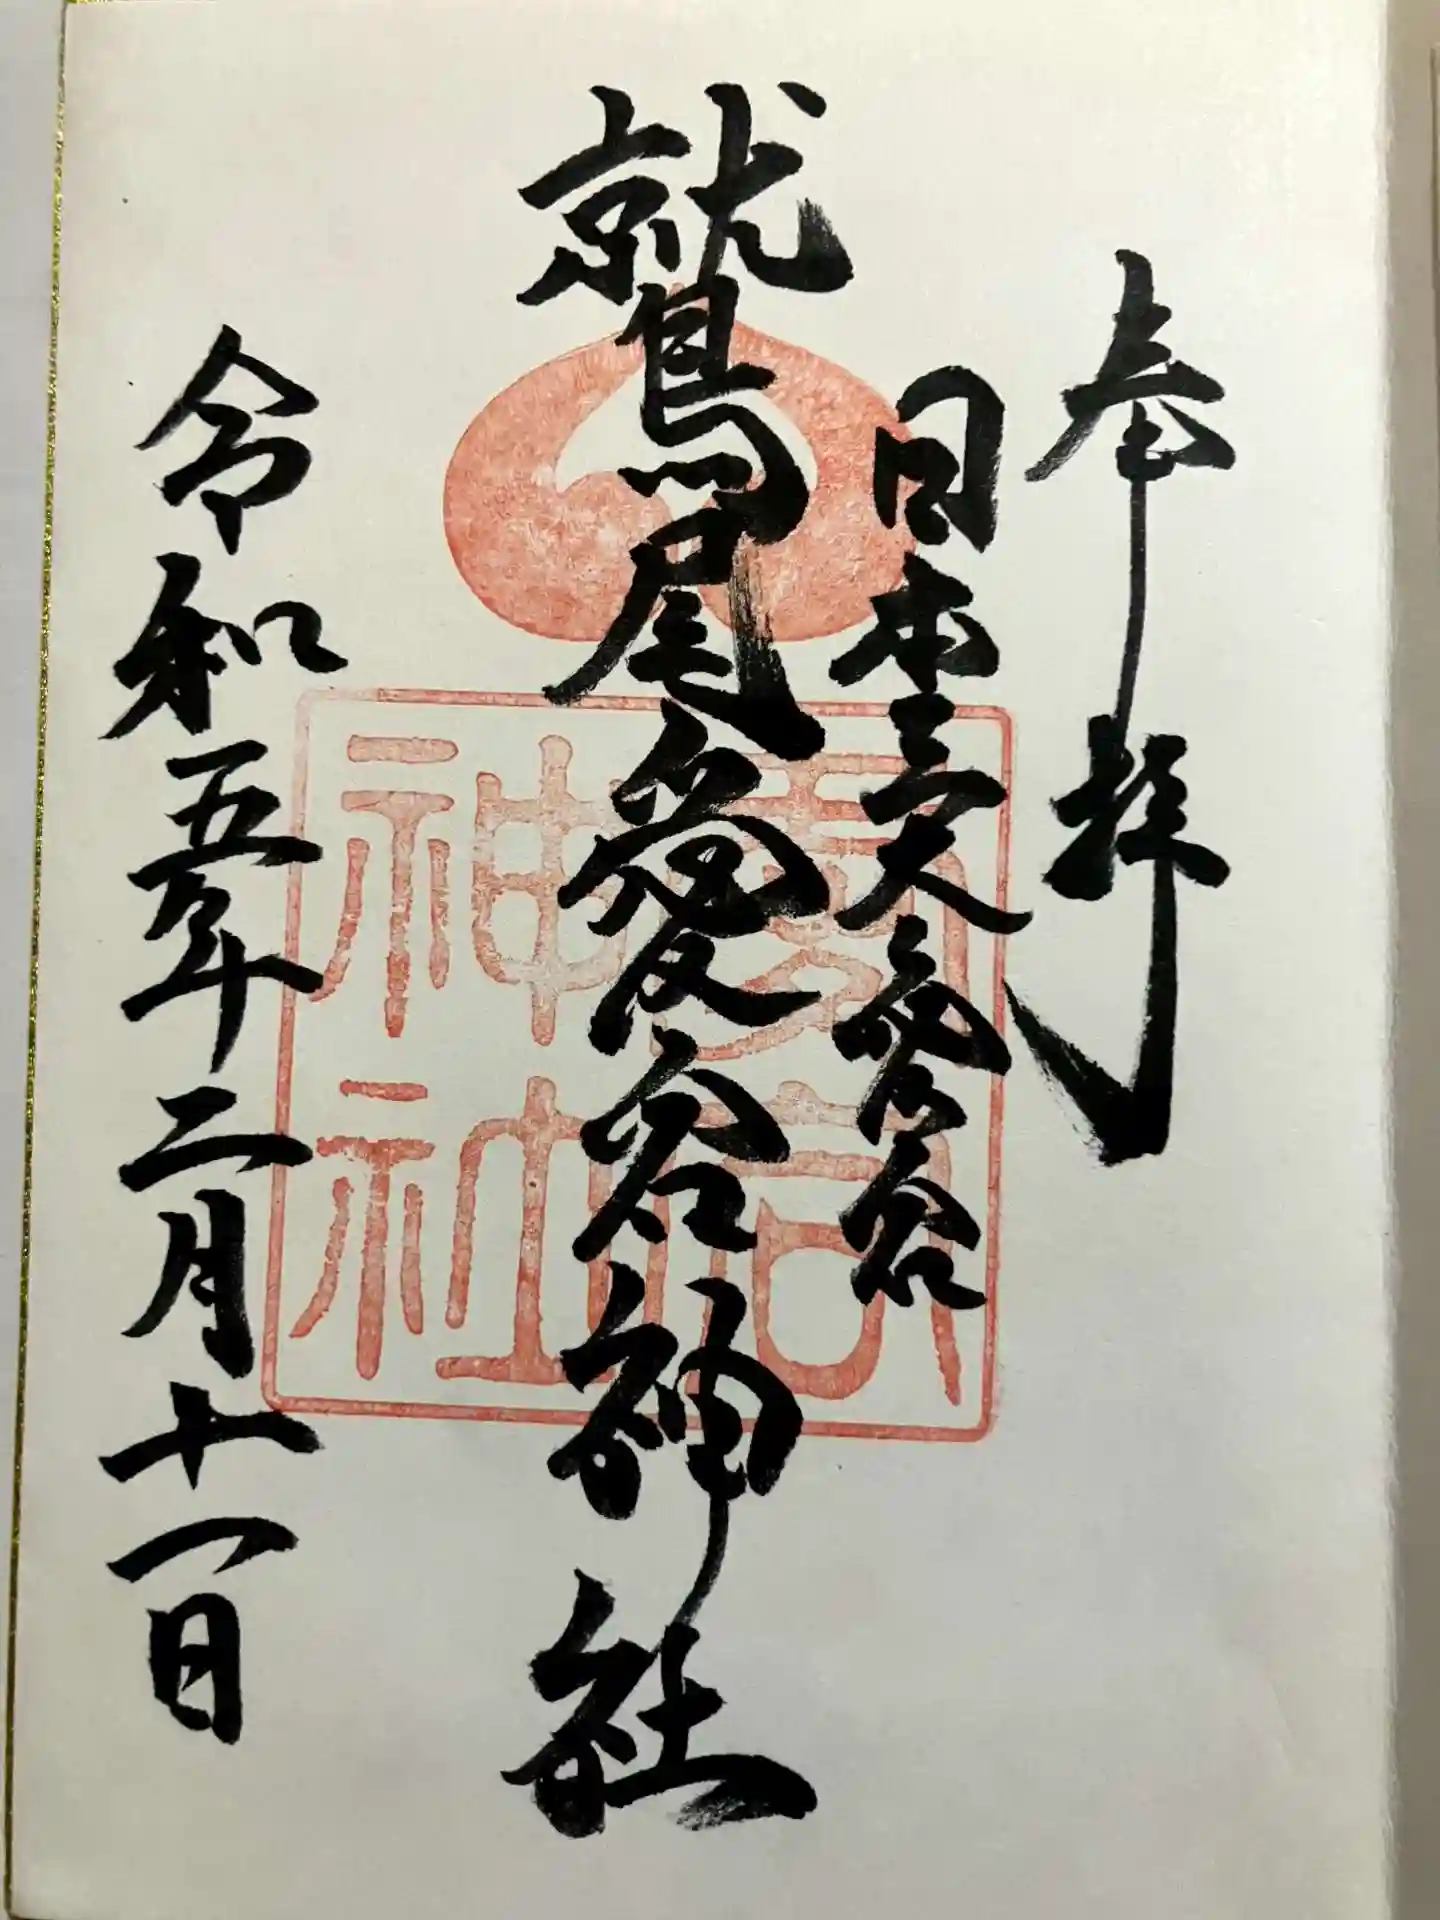 奉拝
日本三大愛宕
鷲尾愛宕神社
令和五年二月十一日
愛宕
神社